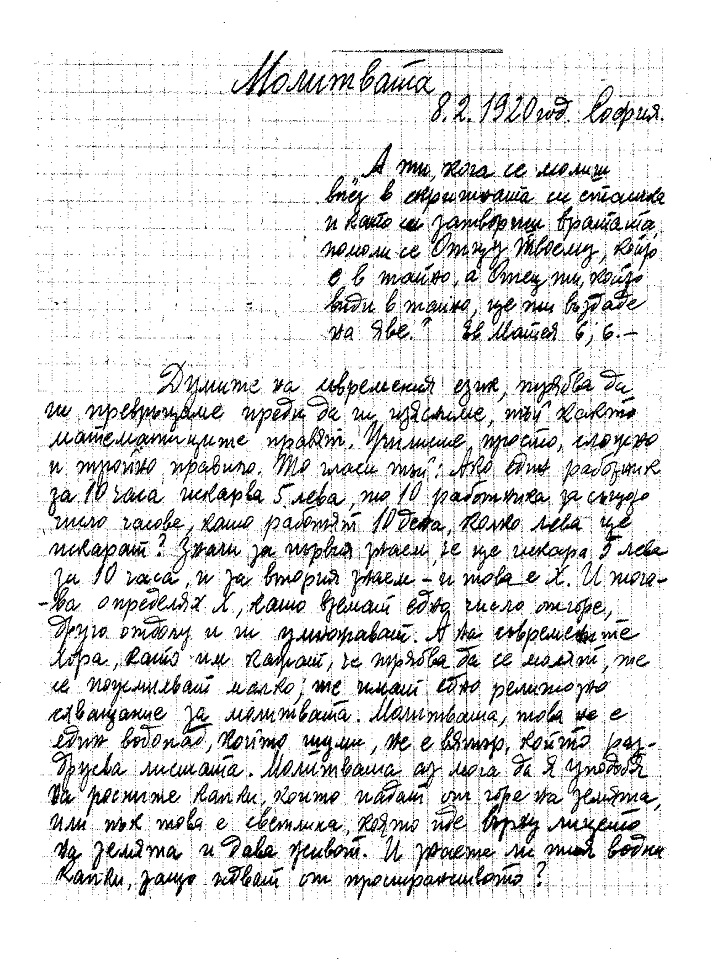 Молитвата
8.2.1920 год. София.
А ти, кога се молиш
влез в скришната си стаичка
и като си затвориш вратата,
помоли се Отцу Твоему, който
е в тайно, а Отец ти, който
види в тайно, ще ти въздаде
на яве." Ев Матея 6; 6.—
Думите на съвременния език, трябва да
ги превръщаме преди да ги изясниме, тъй както
математиците правят. Учили сме, просто, сложно
и тройно правило. То гласи тъй: Ако един работник
за 10 часа искарва 5 лева, то 10 работника за също
число часове, като работят 10 дена, колко лева ще
искарат? Значи за първия знаем, че ще искара 5 лева
за 10 часа, и за втория знаем – и това е X. И тога-
-ва определят X, като вземат едно число отгоре,
друго отдолу и ги умножават. А на съвремените
хора, като им кажат, че трябва да се молят, те
се поусмихват малко; те имат едно религиозно
схващание за молитвата. Молитваша, това не е
един водопад, който шуми, не е вятър, който раз-
друсва листата. Молитваша аз мога да я уподобя
на росните капки, които падат от горе на земята,
или пък това е светлика, която иде върху лицето
на земята и дава живот. И знаете ли тия водни
капки, защо идват от пространството?